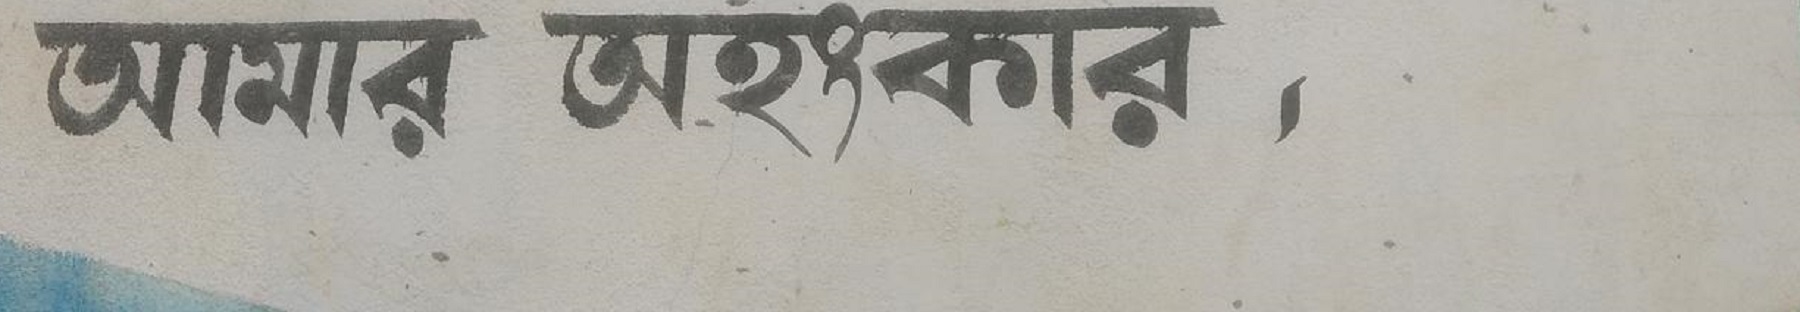 আমার অহংকার ,